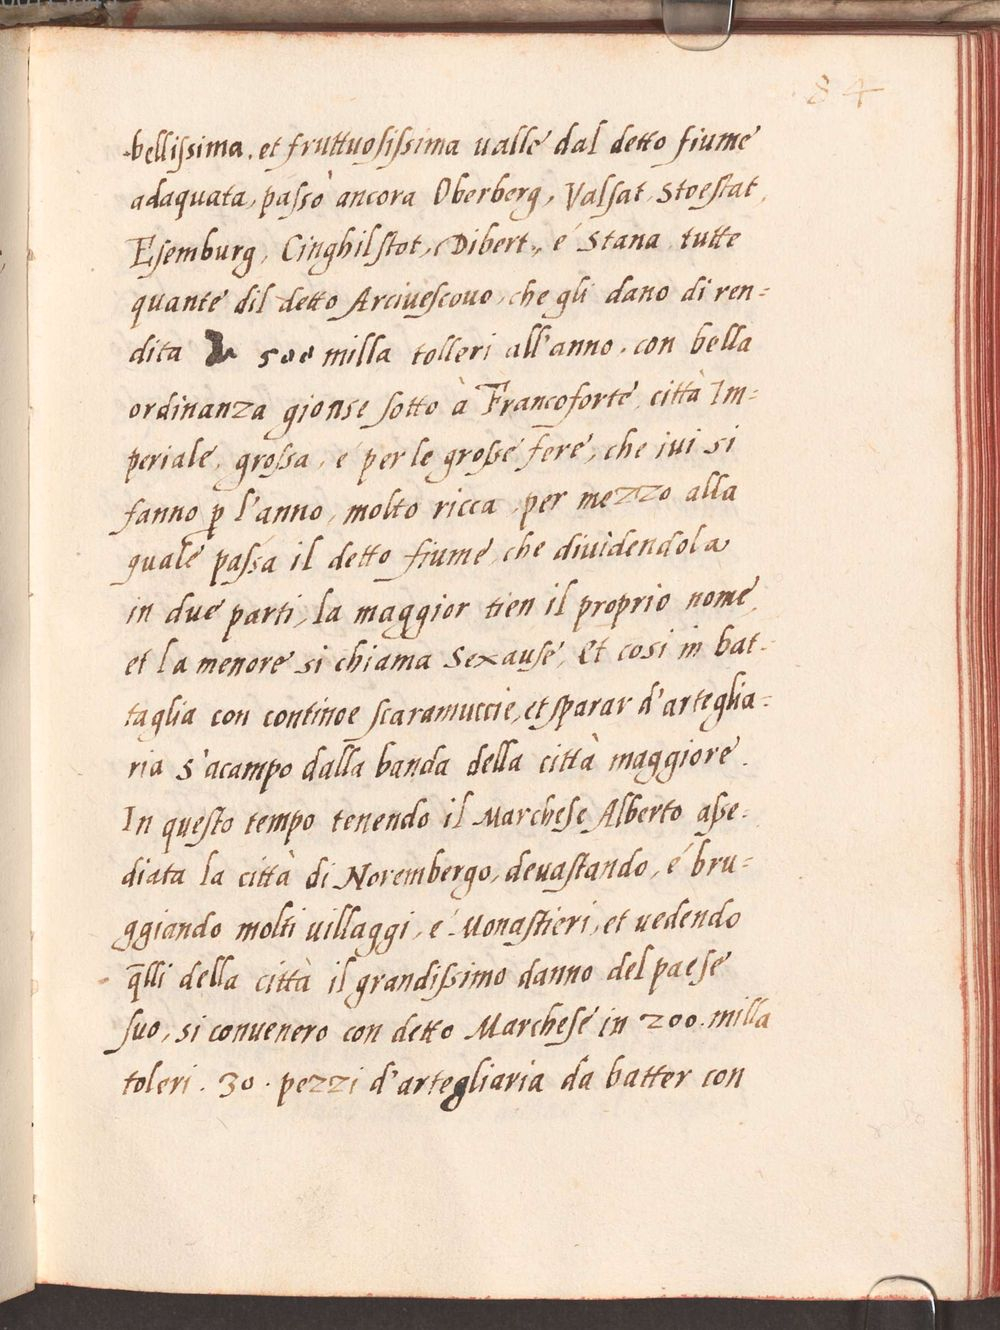 84
bellissima, et fruttuosissima ualle dal detto fiume
adaquata, passò ancora Oberberg, Valsat, Stoestat,
Esemburg, Cinghilstot, Dibert, é Stana tutte
quante dil detto Arciuescouo, che gli dano di ren=
dita 500 milla tolleri all'anno, con bella
ordinanza gionse sotto à Francoforte, città Im=
periale, grossa, é per le grosse fere, che iui si
fanno ꝑ l'anno, molto ricca, per mezzo alla
quale passa il detto fiume, che diuidendola
in due parti, la maggior tien il proprio nome,
et la menore si chiama Sexause, Et cosi in bat=
taglia con continoe scaramuccie, et sparar d'arteglia=
ria s'acampo dalla banda della città maggiore.
In questo tempo tenendo il Marchese Alberto asse=
diata la città di Norembergo, deuastando, é bru=
ggiando molti uillaggi, é Monastieri, et uedendo
q̄lli della città il grandissimo danno del paese
suo, si conuenero con detto Marchese in 200. milla
toleri. 30. pezzi d'artegliaria da batter con